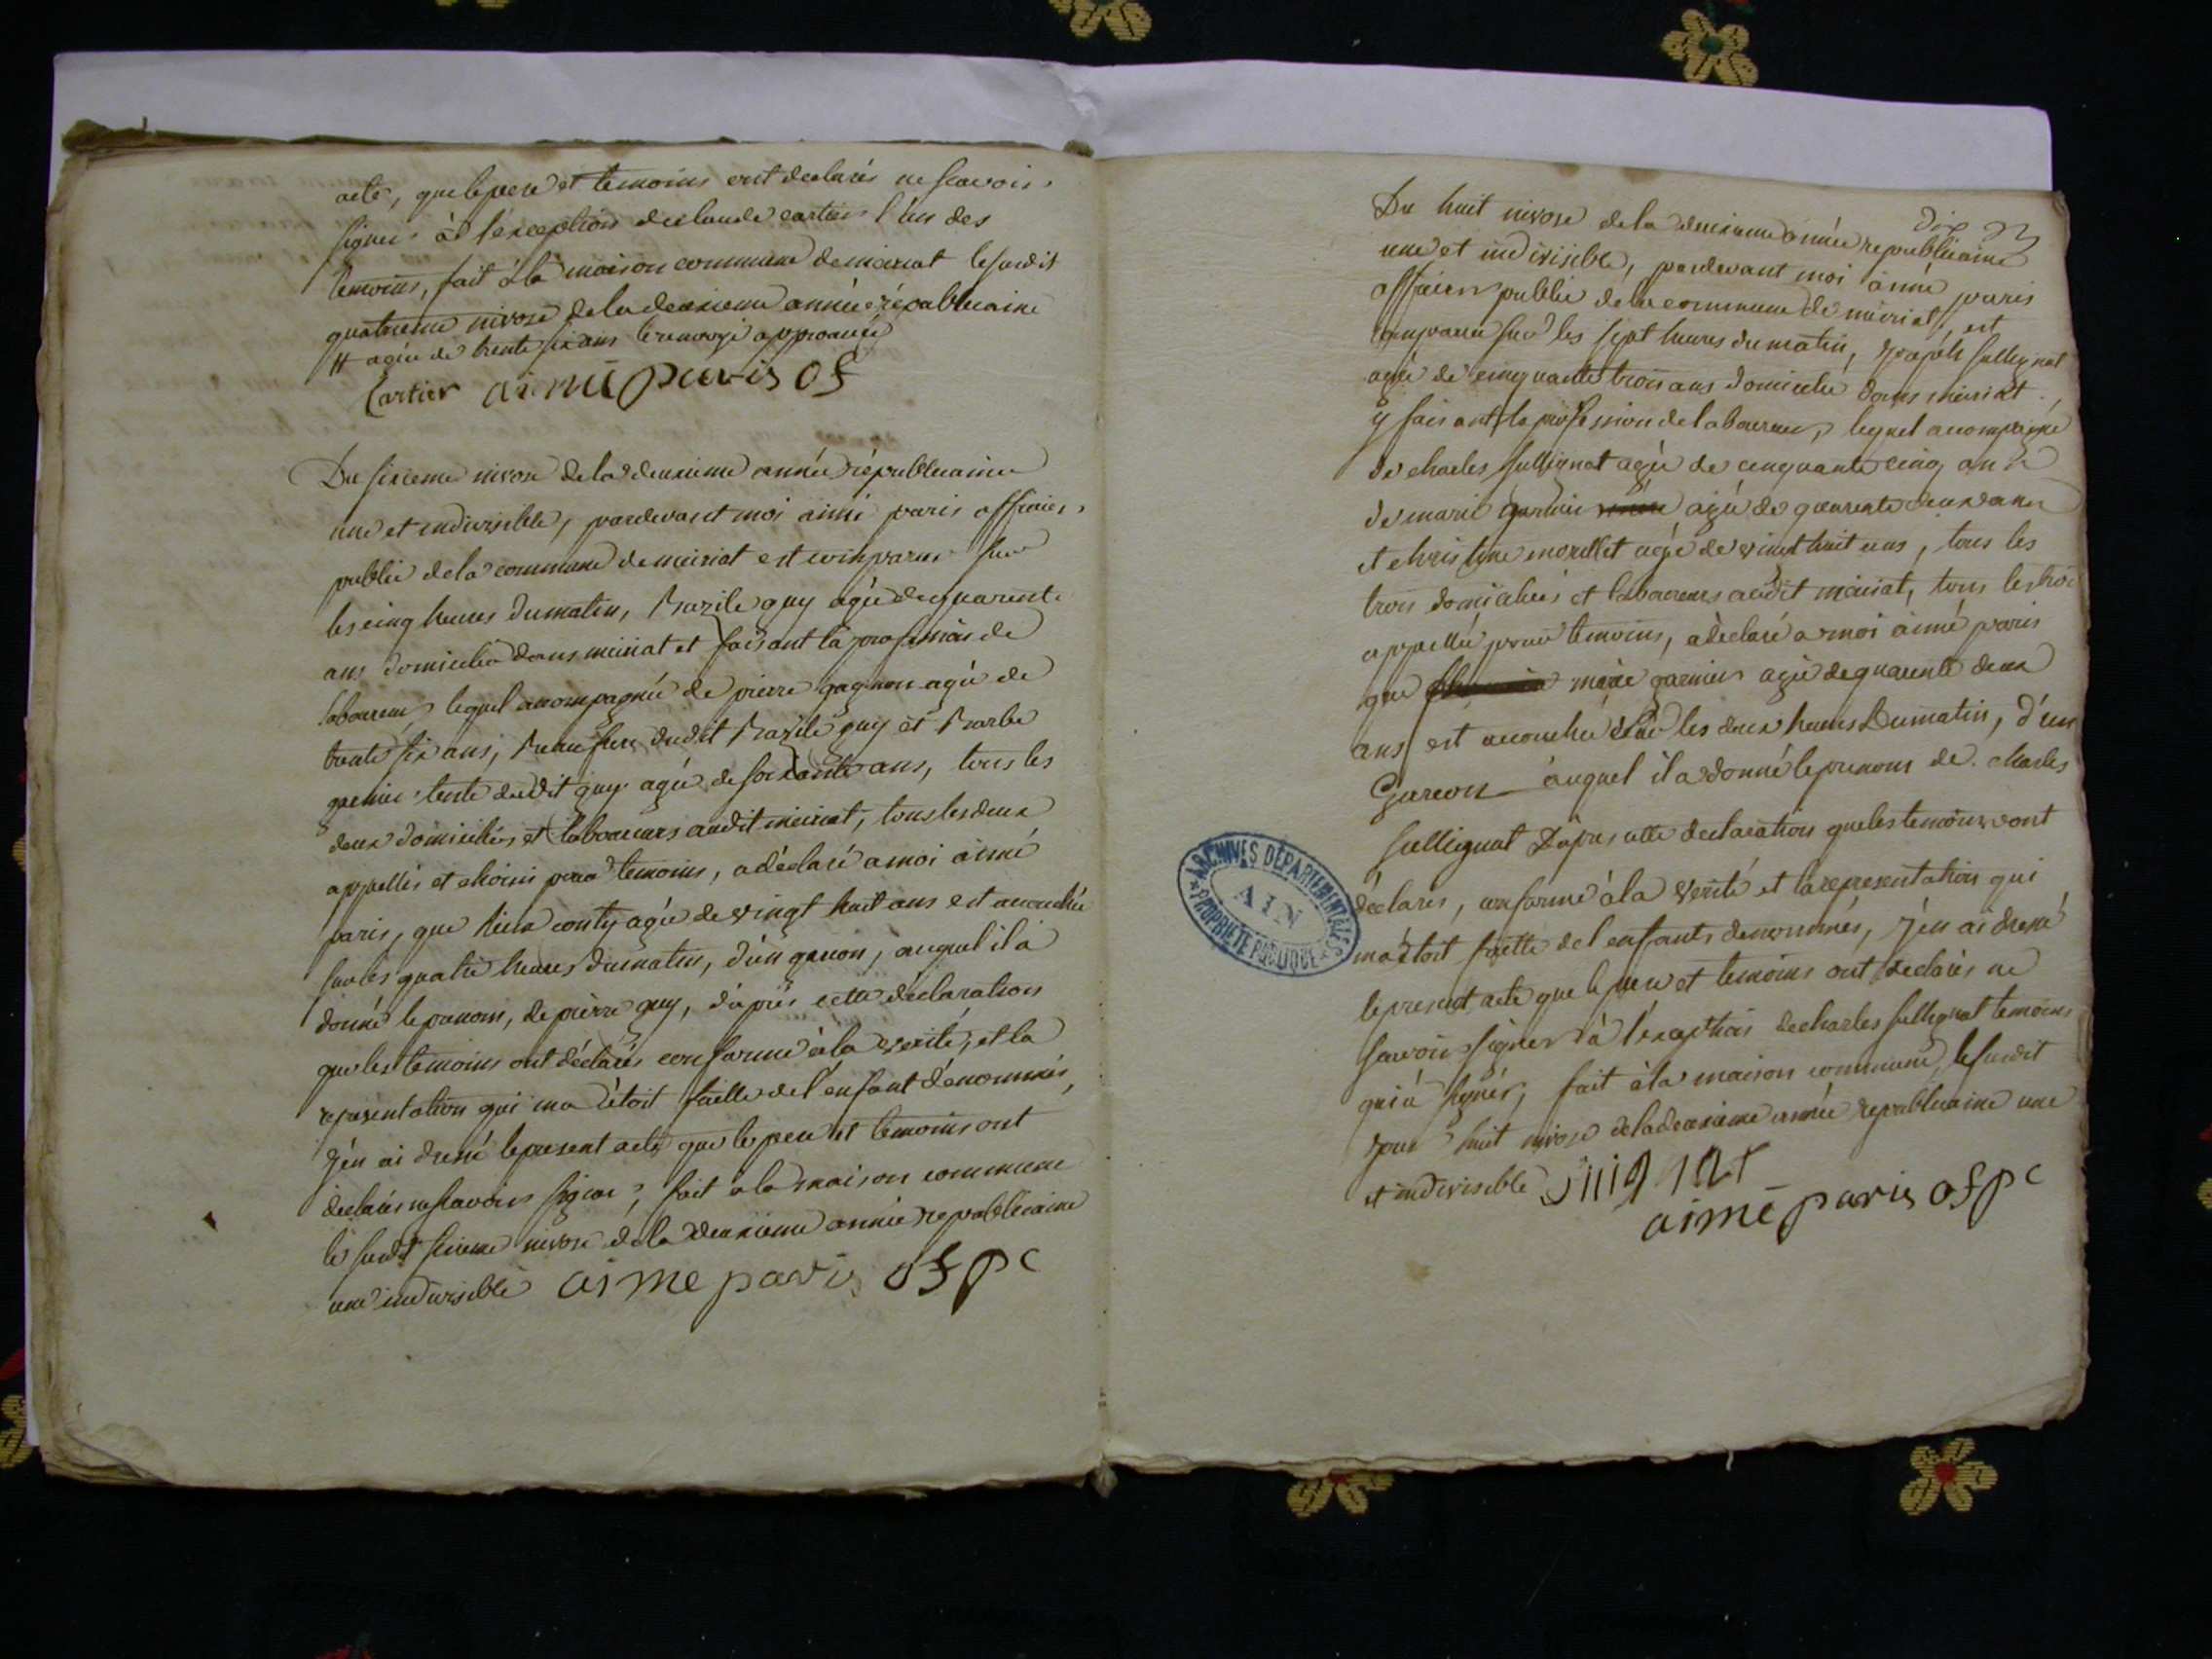 acte, que le pere et temoins ont declarés ne scavoir
signer à l'exception de claude cartier l'un des
temoins, fait à la maison commune de meiriat le susdit
quatrieme nivose de la deuxieme année républicaine
# agée de trente six ans le renvoye approuvée
Cartier aimé paris of
Du sixieme nivose de la deuxieme année républicaine
une et indivisible, pardevant moi aimé paris officier
public de la commune de meiriat est comparu sur
les cinq heures du matin, Bazile guy agé de quarente
ans domicilié dans meiriat et faisant la profession de
laboureur lequel accompagnée de pierre gagnon agé de
trente six ans, beau frere dudit Bazile guy et Barbe
tente dudit guy agée de soixante ans, tous les
deux domiciliés et laboureurs audit meiriat, tous les deux
appellés et choisis pour temoins, a déclaré a moi aimé
paris, que conty agée de vingt huit ans est accouchée
sur les quatre heures du matin, d'un garcon, auquel il a
donné le prenom, de pierre guy, d'après cette déclaration
que les temoins ont déclarés conforme à la verité, et la
representation qui ma étoit faitte de l'enfant dénommés,
j'en ai dressé le present acte que le pere et temoins ont
declarés ne scavoir signer, fait a la maison commune
le susdit sixieme nivose de la deuxieme année republicaine
une indivisible aime paris ofpc
dix
Du huit nivose de la deuxieme année republicaine
une et indivisible, pardevant moi aimé paris
officier public de la commune de meiriat, est
comparu sur les sept heures du matin, joseph sullignat
agé de cinquante trois ans domicilié dans meiriat,
y faisant la profession de laboureur, lequel accompagné
de charles sullignat agé de cinquante cinq ans
de marie agée de quarente deux ans
et christine morellet agée de vingt huit ans, tous les
trois domiciliés et laboureurs audit meiriat, tous les trois
appellée pour temoins, a declaré a moi aimé paris
que marie garnier agée de quarente deux
ans est accouchée sur les deux heures Dumatin, d'un
Garcon auquel il a donné le prenom de charles
sullignat D'apres cette declaration que les temoins ont
déclarés, conforme à la verité et la representation qui
ma etoit faitte de l'enfants denommés, j'en ai dressé
le present acte que le pere et temoins ont declarés ne
savoir signer à l'exception de charles sullignat temoins
qui a signés, fait à la maison commune, le susdit
jour huit nivose de la deuxieme année republicaine une
et indivisible
aimé paris ofpc
ARCHIVES DÉPARTEMENTALES
AIN
PROPRIÉTÉ PUBLIQUE